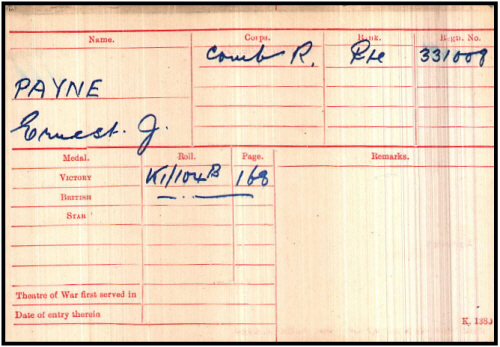 Name. Corps. Rank. Regtl. No.
Camb R. Pte 331008
PAYNE
Ernest. J.
Medal. Roll. Page. Remarks.
VICTORY K1/104B 168
BRITISH —.—
STAR
Theatre of War first served in
Date of entry therein
K. 1380